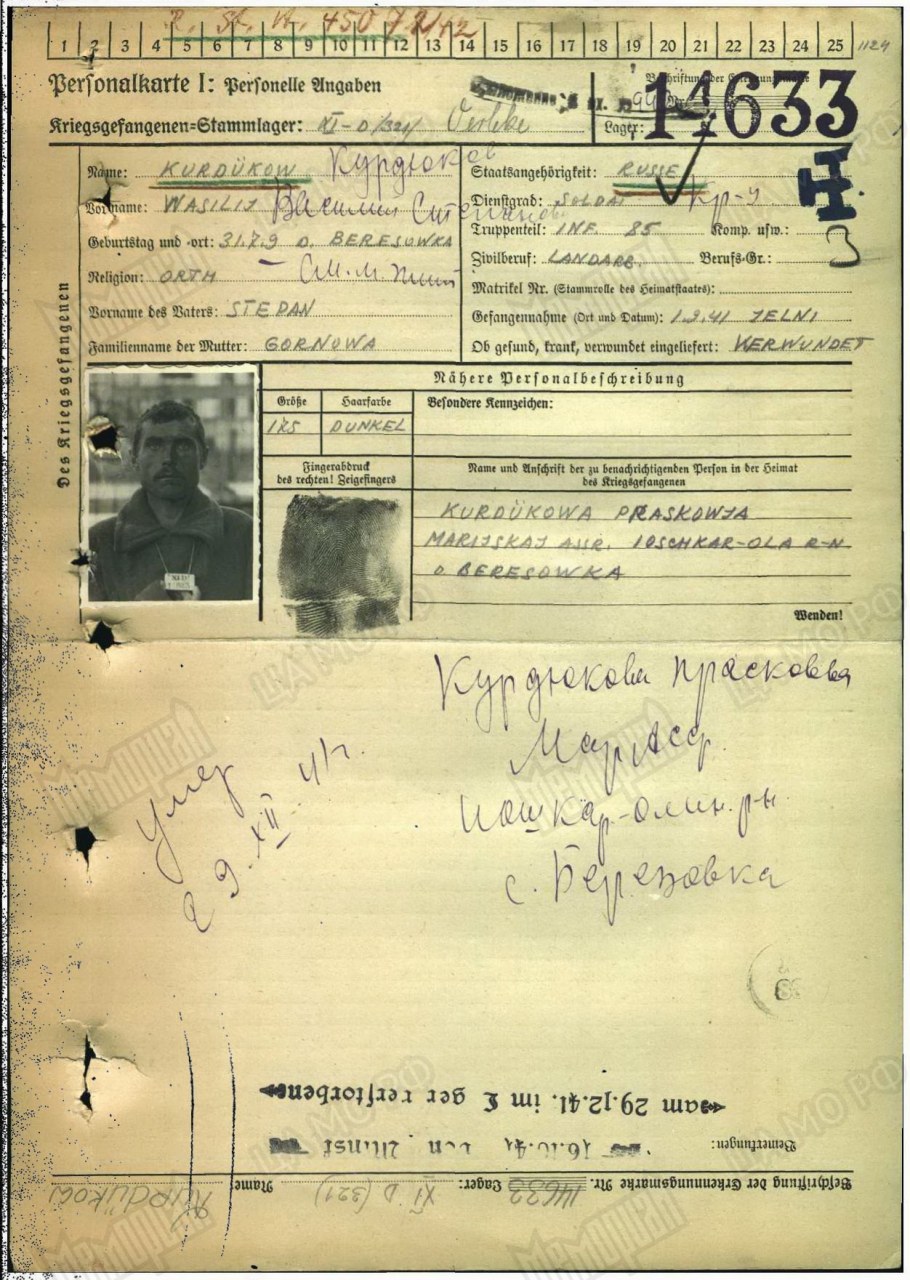 R. St. W. 450 7/2/42
1 2 3 4 5 6 7 8 9 10 11 12 13 14 15 16 17 18 19 20 21 22 23 24 25
1124
Personalkarte I: Personelle Angaben
Kriegsgefangenen=Stammlager: XI-D/321/ Oerbke
Beschriftung der Erkennungsmarke
Nr. 14633
Lager:
Des Kriegsgefangenen
Name: KURDÜKOW Курдюков
Vorname: WASILIJ Василий Степанов
Geburtstag und -ort: 31.7.9 D. BERESOWKA
Religion: ORTH
Vorname des Vaters: STEPAN
Familienname der Mutter: GORNOWA
Staatsangehörigkeit: RUSSE
Dienstgrad: SOLDAT кр-ц
Truppenteil: INF. 85 Komp. usw.:
Zivilberuf: LANDARB. Berufs-Gr.: 3
Matrikel Nr. (Stammrolle des Heimatstaates):
Gefangennahme (Ort und Datum): 1.9.41 JELNI
Ob gesund, krank, verwundet eingeliefert: VERWUNDET
Nähere Personalbeschreibung
Größe Haarfarbe Besondere Kennzeichen:
175 DUNKEL
Fingerabdruck
des rechten! Zeigefingers
Name und Anschrift der zu benachrichtigenden Person in der Heimat
des Kriegsgefangenen
KURDÜKOWA PRASKOWJA
MARIJSKAJ ASSR. IOSCHKAR-OLA R-N
D BERESOWKA
Wenden!
Курдюкова Прасковья
Мар Асср.
Йошкар-олин. р-н
с. Березовка
умер
29.XII.41г.
Bemerkungen:
16.10.41 von Minsk
am 29.12.41. im Lager verstorben
Beschriftung der Erkennungsmarke Nr. 14633 Lager: XI D (321) Name KURDÜKOW
ЦАМО РФ